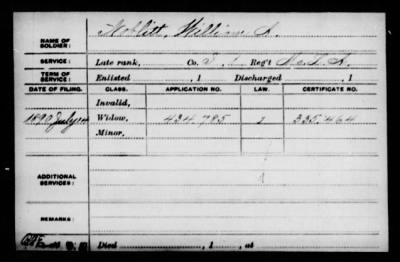 NAME OF SOLDIER: Noblitt, William L.
SERVICE: Late rank, Co. Reg't
TERM OF SERVICE: Enlisted , 1 Discharged , 1
DATE OF FILING. CLASS. APPLICATION NO. LAW. CERTIFICATE NO.
Invalid,
1890 July 14 Widow, 434.785 335.464
Minor,
ADDITIONAL SERVICES:
REMARKS:
Died , 1 , at